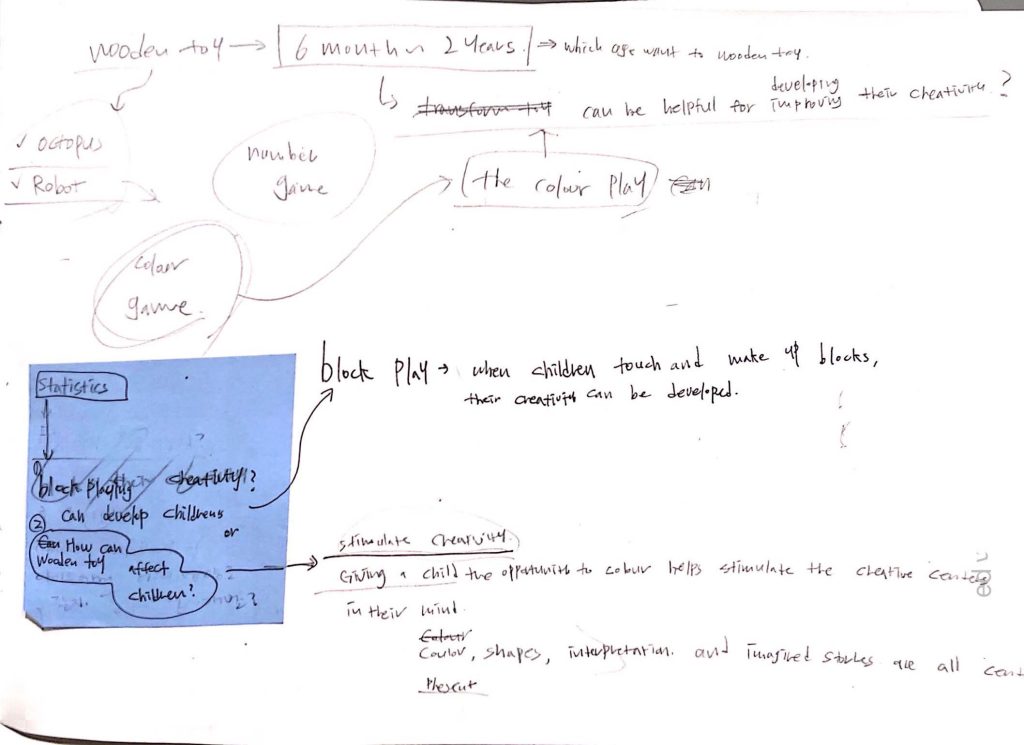 wooden toy → 6 month ~ 2 years. ⇒ which age want to wooden toy.
↳ transform toy can be helpful for developing improving their creativity ?
✓ octopus
✓ Robot
number
game
the colour play
colour
game.
block play → when children touch and make up blocks,
their creativity can be developed.
Statistics
①
block playing their creativity?
can develop childrens
or
②
Can How can
wooden toy affect
children?
stimulate creativity.
Giving a child the opportunity to colour helps stimulate the creative
in their mind.
Colour
Coulor, shapes, interpretation. and imagined stories are all
present